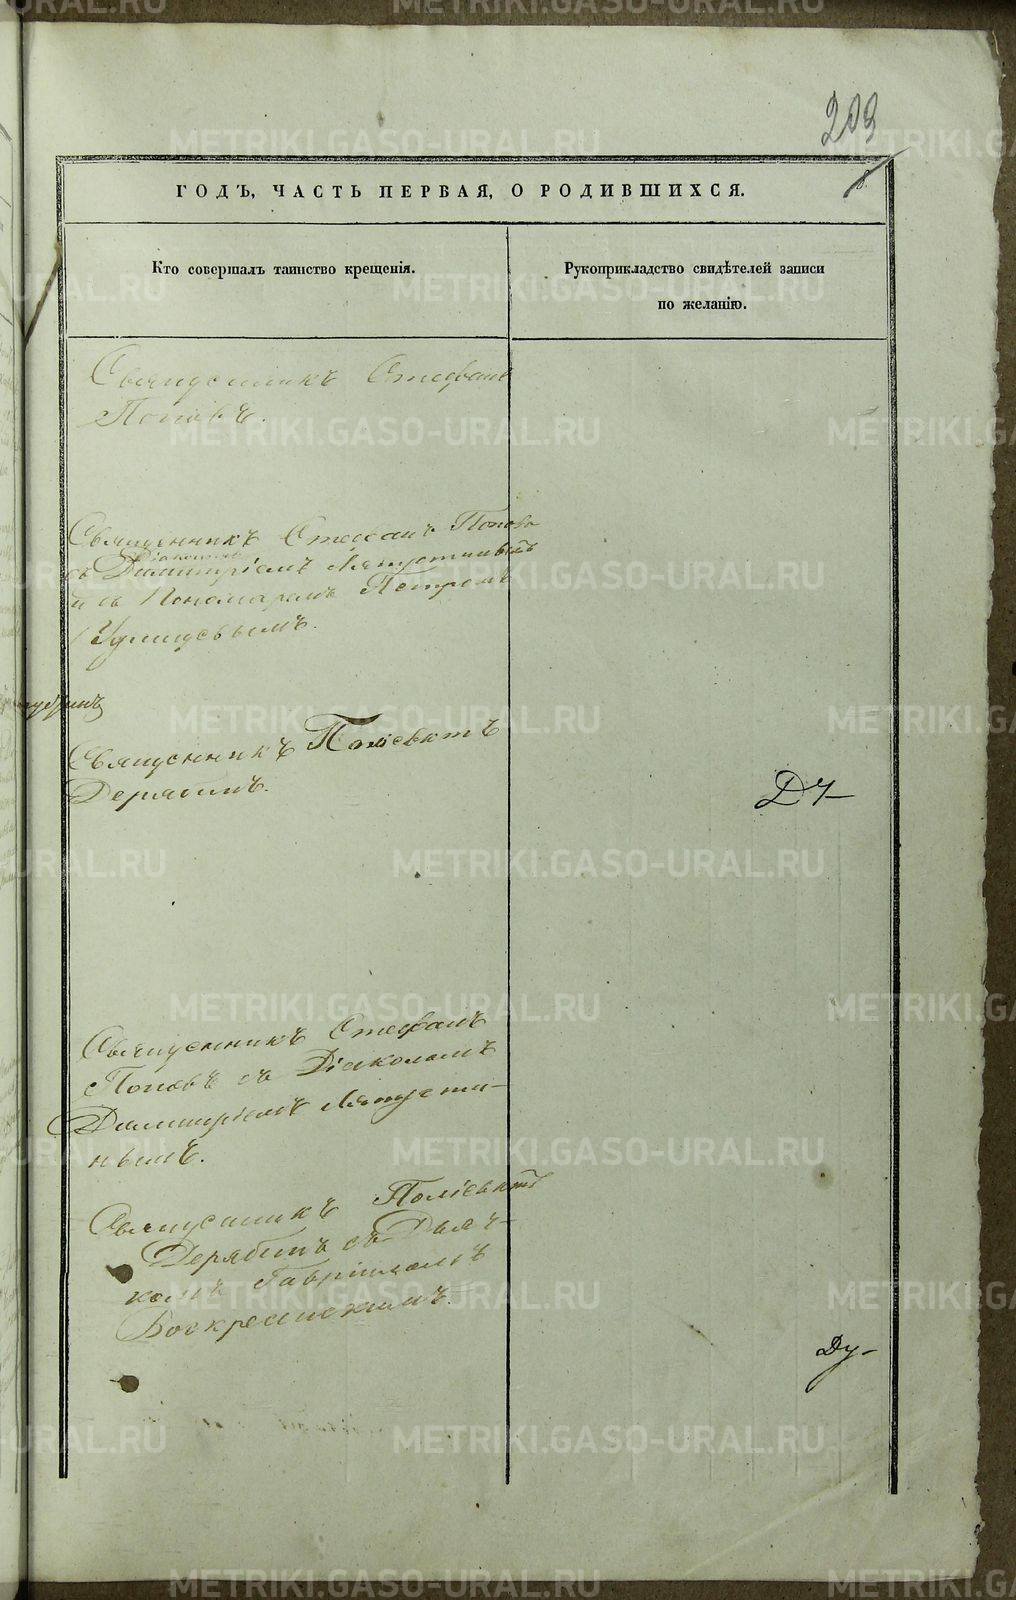 203
8.
ГОДЪ, ЧАСТЬ ПЕРВАЯ, О РОДИВШИХСЯ.
Кто совершалъ таинство крещенія.
Рукоприкладство свидѣтелей записи
по желанію.
Священникъ Стефанъ
Поповъ.
Священникъ Стефанъ Поповъ
діакономъ
съ Димитріемъ Ляпустинымъ
и съ Пономаремъ Петромъ
Священникъ Поліевктъ
Дерябинъ.
Священникъ Стефанъ
Поповъ съ Діакономъ
Димитріемъ Ляпусти-
нымъ.
Священникъ Поліевктъ
Дерябинъ съ Дьяч-
комъ Гавріиломъ
Воскресенскимъ.
METRIKI.GASO-URAL.RU